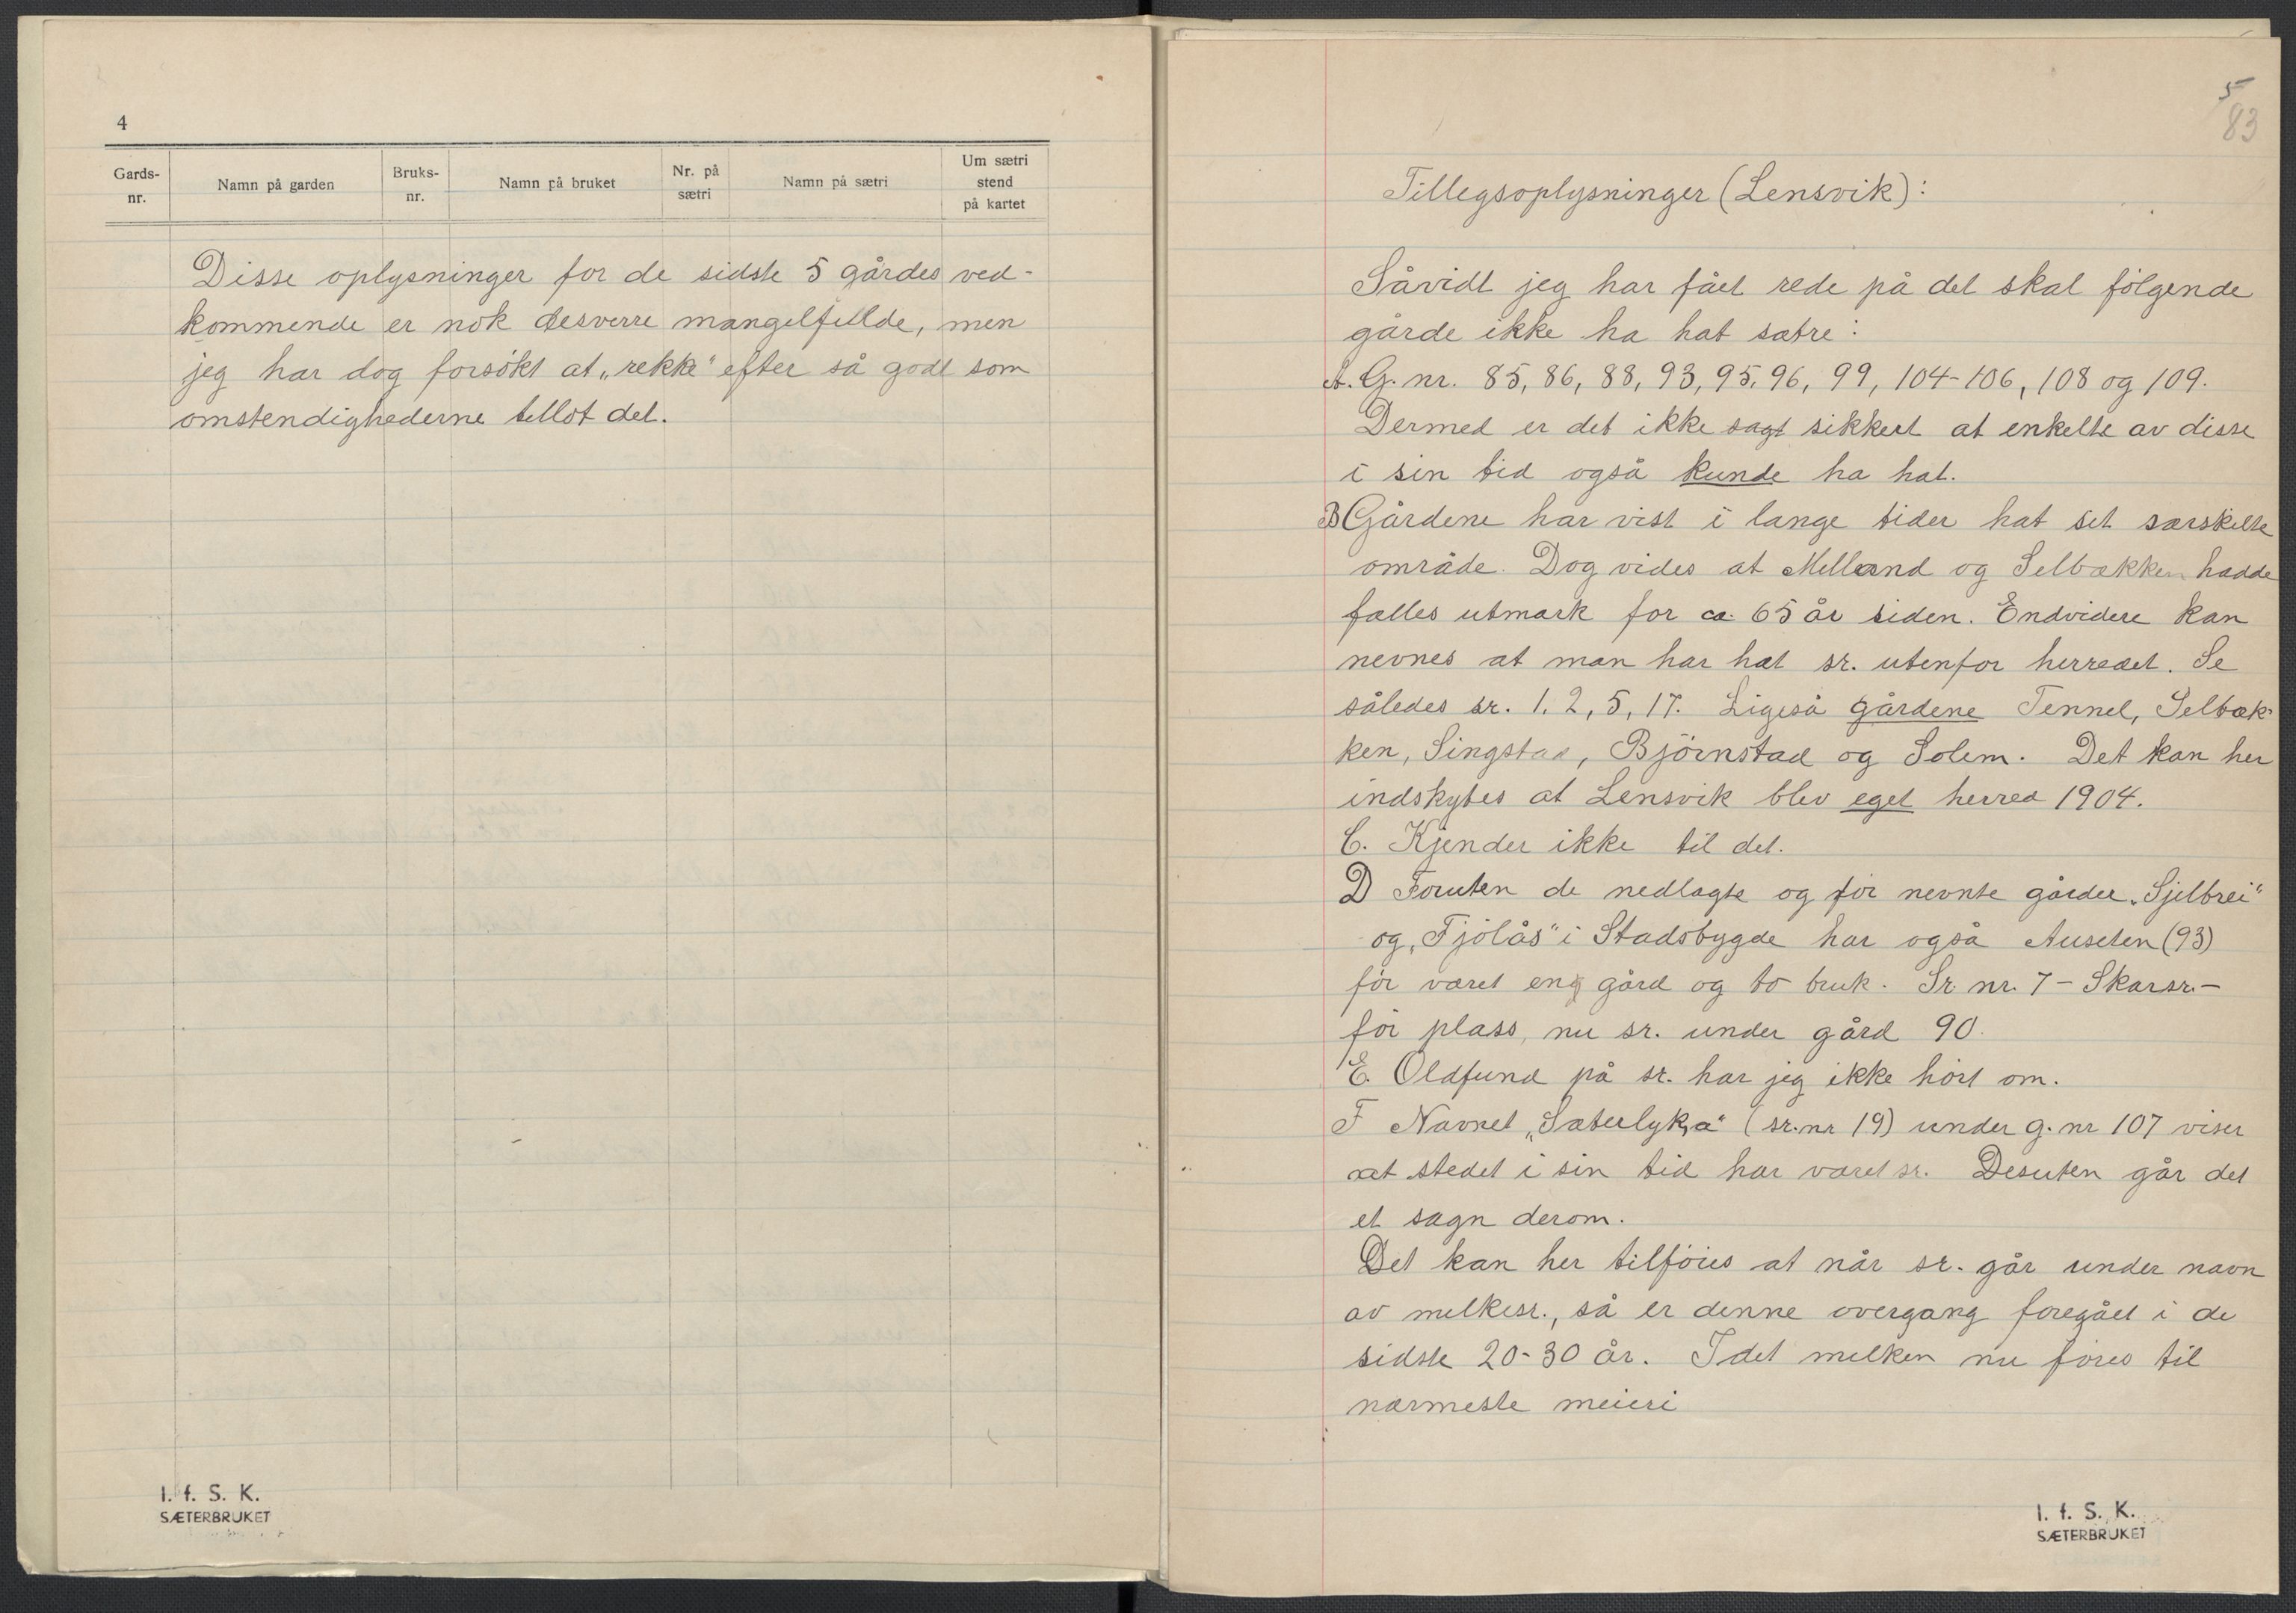 4
Gards-nr. Namn på garden Bruks-nr. Namn på bruket Nr. på sætri Namn på sætri Um sætri stend på kartet
Disse oplysninger for de sidste 5 gårdes ved-
kommende er nok desverre mangelfulde, men
jeg har dog forsökt at „rekke" efter så godt som
omstendighederne tillot det.
I. f. S. K.
SÆTERBRUKET
5
83
Tillegsoplysninger (Lensvik):
Såvidt jeg har fået rede på det skal fölgende
gårde ikke ha hat sætre:
A. G. nr. 85, 86, 88, 93, 95, 96, 99, 104-106, 108 og 109.
Dermed er det ikke sagt sikkert at enkelte av disse
i sin tid også kunde ha hat.
B Gårdene har vist i lange tider hat sit særskilte
område. Dog vides at Melland og Selbækken hadde
fælles utmark for ca. 65 år siden. Endvidere kan
nevnes at man har hat sr. utenfor herredet. Se
således sr. 1, 2, 5, 17. Ligeså gårdene Tennel, Selbæk-
ken, Singstad, Björnstad og Solem. Det kan her
indskytes at Lensvik blev eget herred 1904.
C. Kjender ikke til det.
D Foruten de nedlagte og för nevnte gårder „Sjelbrei"
og „Fjölås" i Stadsbygde har også Auseten (93)
för været eng gård og to bruk. Sr. nr. 7 - Skarsr. -
för plass, nu sr. under gård 90.
E. Oldfund på sr. har jeg ikke hört om.
F Navnet „Sæterlykja" (sr. nr 19) under g. nr 107 viser
at stedet i sin tid har været sr. Desuten går det
et sagn derom.
Det kan her tilföies at når sr. går under navn
av melkesr., så er denne overgang foregået i de
sidste 20-30 år. Idet melken nu föres til
nærmeste meieri
I. f. S. K.
SÆTERBRUKET